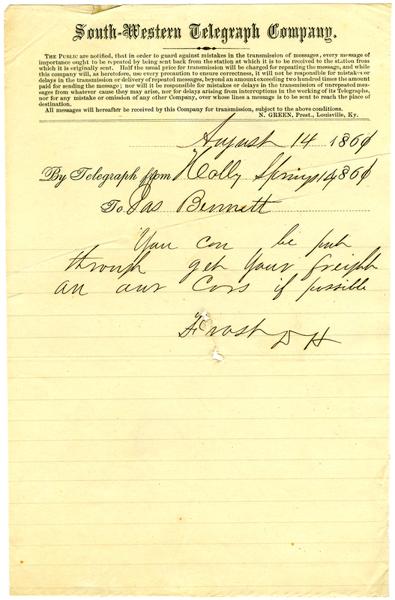 South-Western Telegraph Company.
THE PUBLIC are notified, that in order to guard against mistakes in the transmission of messages, every message of
importance ought to be repeated by being sent back from the station at which it is to be received to the station from
which it is originally sent. Half the usual price for transmission will be charged for repeating the message, and while
this company will, as heretofore, use every precaution to ensure correctness, it will not be responsible for mistakes or
delays in the transmission or delivery of repeated messages, beyond an amount exceeding two hundred times the amount
paid for sending the message; nor will it be responsible for mistakes or delays in the transmission of unrepeated messages
from whatever cause they may arise, nor for delays arising from interruptions in the working of its Telegraphs,
nor for any mistake or omission of any other Company, over whose lines a message is to be sent to reach the place of
destination.
All messages will hereafter be received by this Company for transmission, subject to the above conditions.
N. GREEN, Prest., Louisville, Ky.
August 14 1861
By Telegraph from Holly Springs 14 1861
To Jas Bennett
You can be put
through get your freight
on our Cars if possible
Frost D H